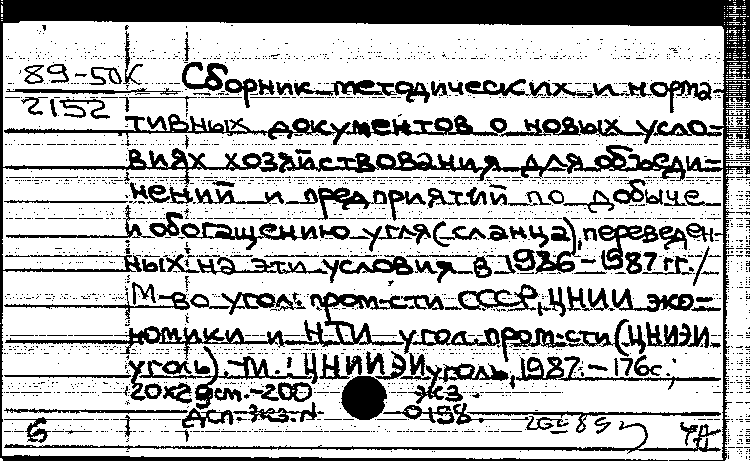 89-50К Сборник методических и норма-
2152
тивных документов о новых усло-
виях хозяйствования для объеди-
нений и предприятий по добыче
и обогащению угля (сланца), переведен-
ных на эти условия в 1986-1987 гг. /
М-во угол. пром-сти СССР, ЦНИИ эко-
номики и НТИ угол. пром-сти (ЦНИЭИ
уголь). - М. : ЦНИИЭИуголь, 1987. - 176с.;
20х29см. - 200 экз.
Дсп. Экз. N 0158.
б